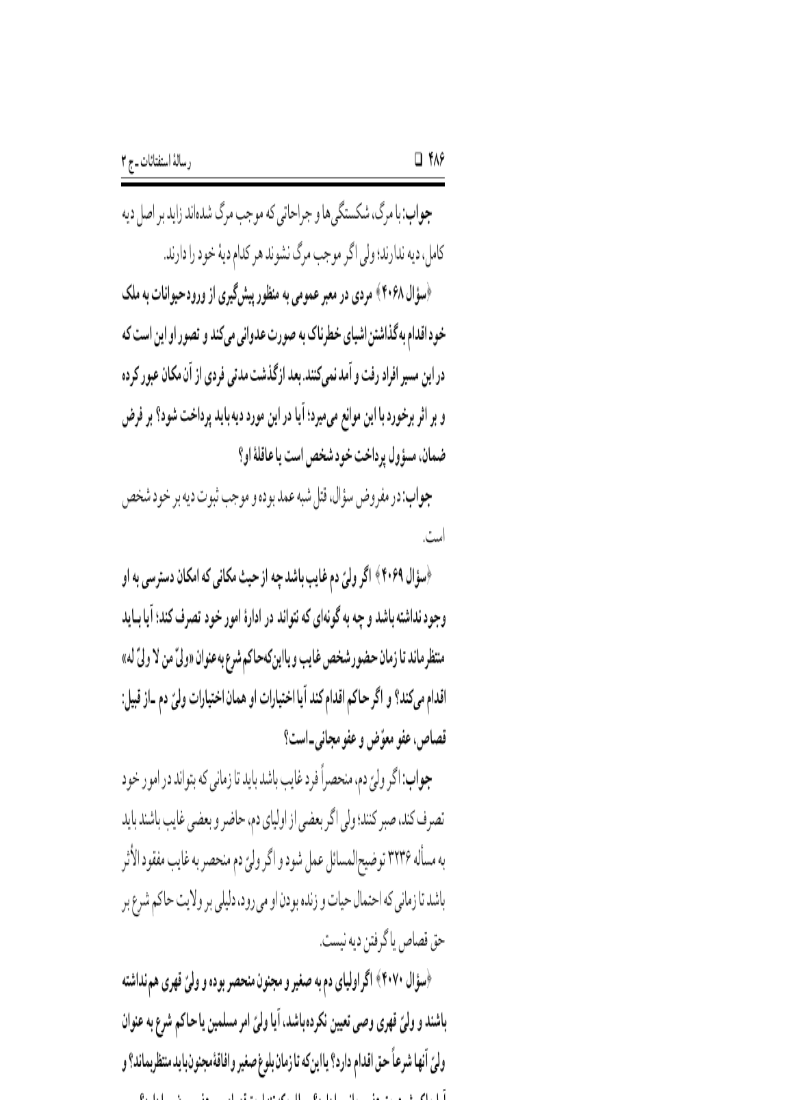 ۴۸۶ □ رسالهٔ استفتائات ـ ج ۳
جواب: با مرگ، شکستگی‌ها و جراحاتی که موجب مرگ شده‌اند زاید بر اصل دیه
کامل، دیه ندارند؛ ولی اگر موجب مرگ نشوند هر کدام دیهٔ خود را دارند.
﴿سؤال ۴۰۶۸﴾ مردی در معبر عمومی به منظور پیش‌گیری از ورود حیوانات به ملک
خود اقدام به گذاشتن اشیای خطرناک به صورت عدوانی می‌کند و تصور او این است که
در این مسیر افراد رفت و آمد نمی‌کنند. بعد از گذشت مدتی فردی از آن مکان عبور کرده
و بر اثر برخورد با این موانع می‌میرد؛ آیا در این مورد دیه باید پرداخت شود؟ بر فرض
ضمان، مسؤول پرداخت خود شخص است یا عاقلهٔ او؟
جواب: در مفروض سؤال، قتل شبه عمد بوده و موجب ثبوت دیه بر خود شخص
است.
﴿سؤال ۴۰۶۹﴾ اگر ولیّ دم غایب باشد چه از حیث مکانی که امکان دسترسی به او
وجود نداشته باشد و چه به گونه‌ای که نتواند در ادارهٔ امور خود تصرف کند؛ آیا باید
منتظر ماند تا زمان حضور شخص غایب و یا این‌که حاکم شرع به عنوان «ولیّ من لا ولیّ له»
اقدام می‌کند؟ و اگر حاکم اقدام کند آیا اختیارات او همان اختیارات ولیّ دم ـ از قبیل:
قصاص، عفو معوّض و عفو مجانی ـ است؟
جواب: اگر ولیّ دم، منحصراً فرد غایب باشد باید تا زمانی که بتواند در امور خود
تصرف کند، صبر کنند؛ ولی اگر بعضی از اولیای دم، حاضر و بعضی غایب باشند باید
به مسأله ۳۲۳۶ توضیح‌المسائل عمل شود و اگر ولیّ دم منحصر به غایب مفقود الأثر
باشد تا زمانی که احتمال حیات و زنده بودن او می‌رود، دلیلی بر ولایت حاکم شرع بر
حق قصاص یا گرفتن دیه نیست.
﴿سؤال ۴۰۷۰﴾ اگر اولیای دم به صغیر و مجنون منحصر بوده و ولیّ قهری هم نداشته
باشند و ولیّ قهری وصی تعیین نکرده باشد، آیا ولیّ امر مسلمین یا حاکم شرع به عنوان
ولیّ آنها شرعاً حق اقدام دارد؟ یا این‌که تا زمان بلوغ صغیر و افاقهٔ مجنون باید منتظر بماند؟ و